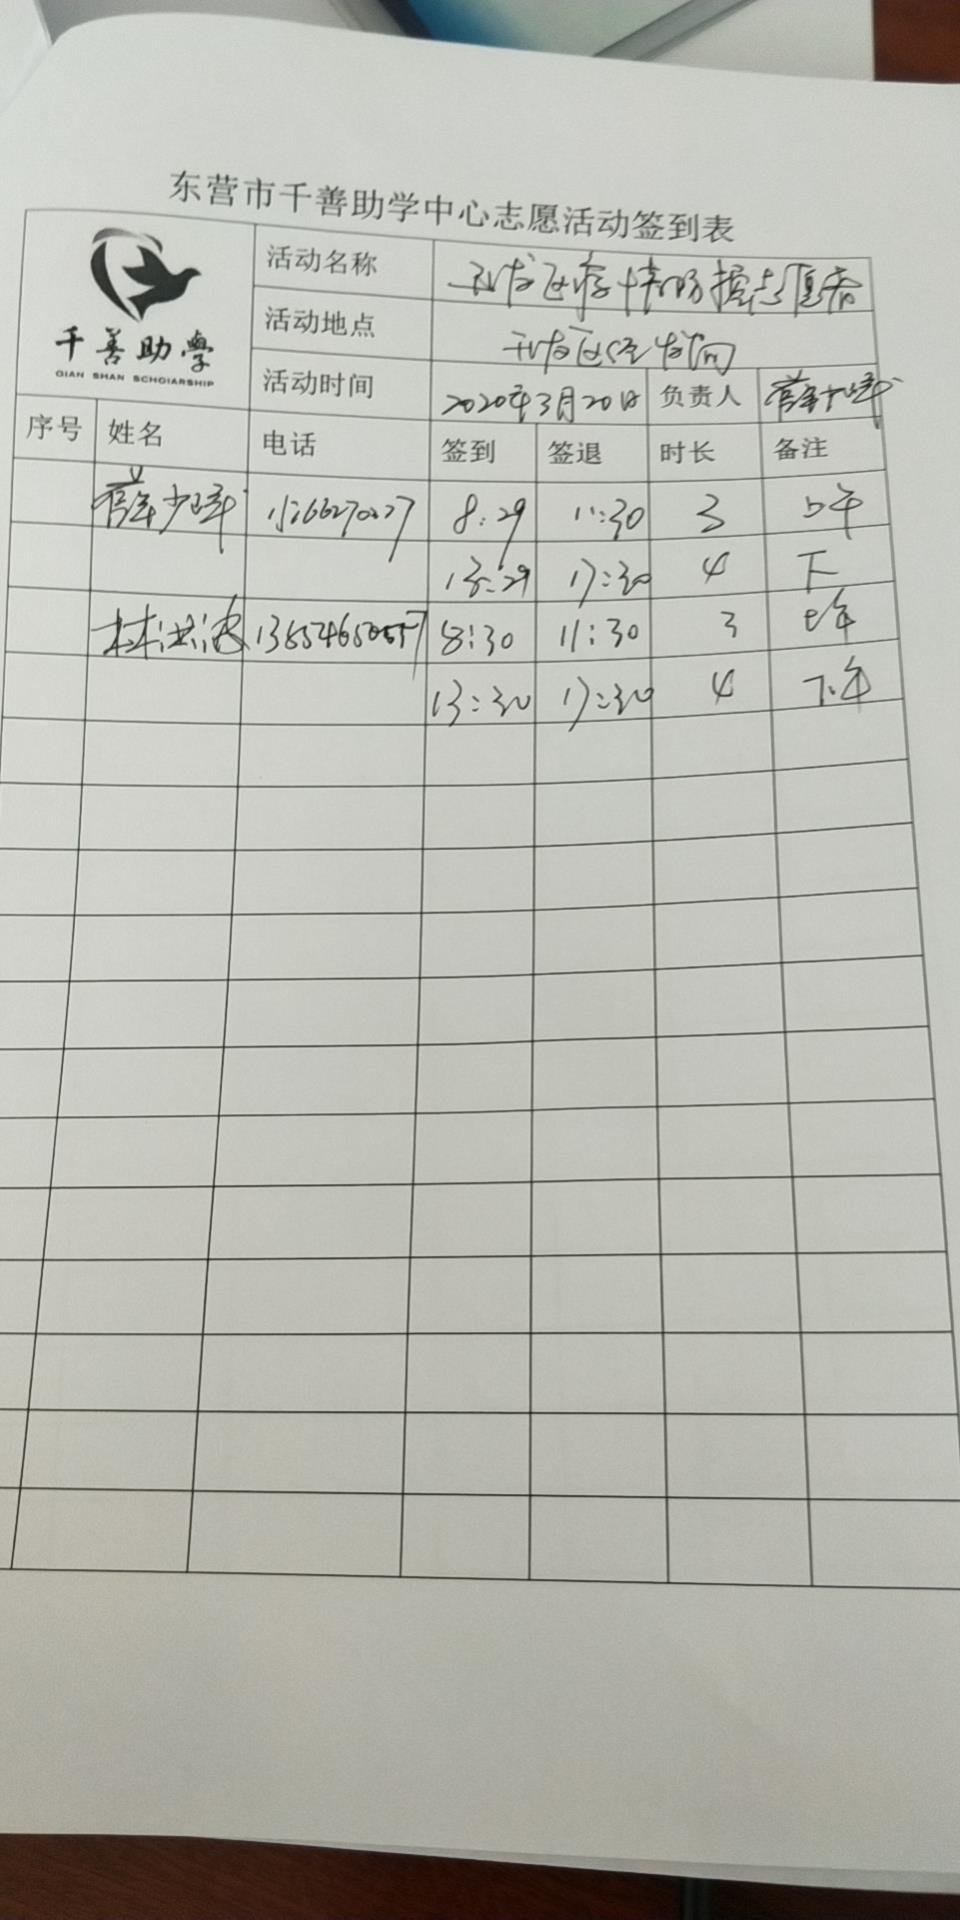 东营市千善助学中心志愿活动签到表
千善助学
QIAN SHAN SCHOIARSHIP
活动名称 开发区疫情防控志愿者
活动地点 开发区
活动时间 2020年3月20日 负责人
序号 姓名 电话 签到 签退 时长 备注
8:29 11:30 3 上午
13:29 17:30 4 下
林洪波 8:30 11:30 3 上午
13:30 17:30 4 下午